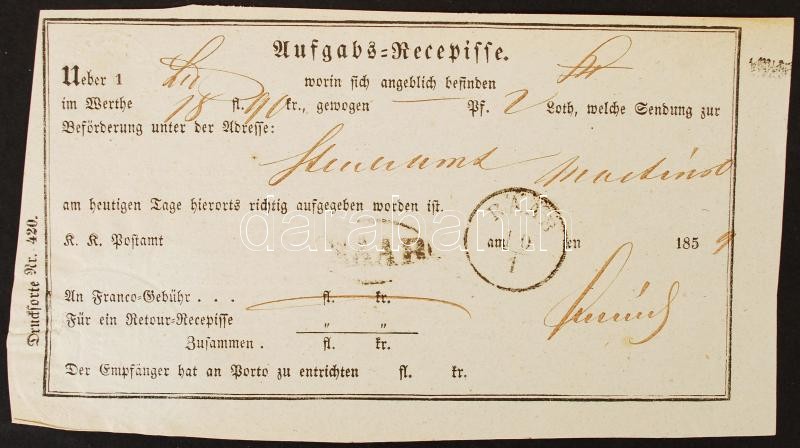 Aufgabs-Recepisse.
Ueber 1 worin sich angeblich befinden
im Werthe 18 fl. 90 kr., gewogen — Pf. 2 Loth, welche Sendung zur
Beförderung unter der Adresse:
Steueramt
am heutigen Tage hierorts richtig aufgegeben worden ist.
K. K. Postamt am 10/1 ten 1859
An Franco-Gebühr . . . fl. kr.
Für ein Retour-Recepisse " "
Zusammen . fl. kr.
Der Empfänger hat an Porto zu entrichten fl. kr.
Drucksorte Nr. 420.
darabanth